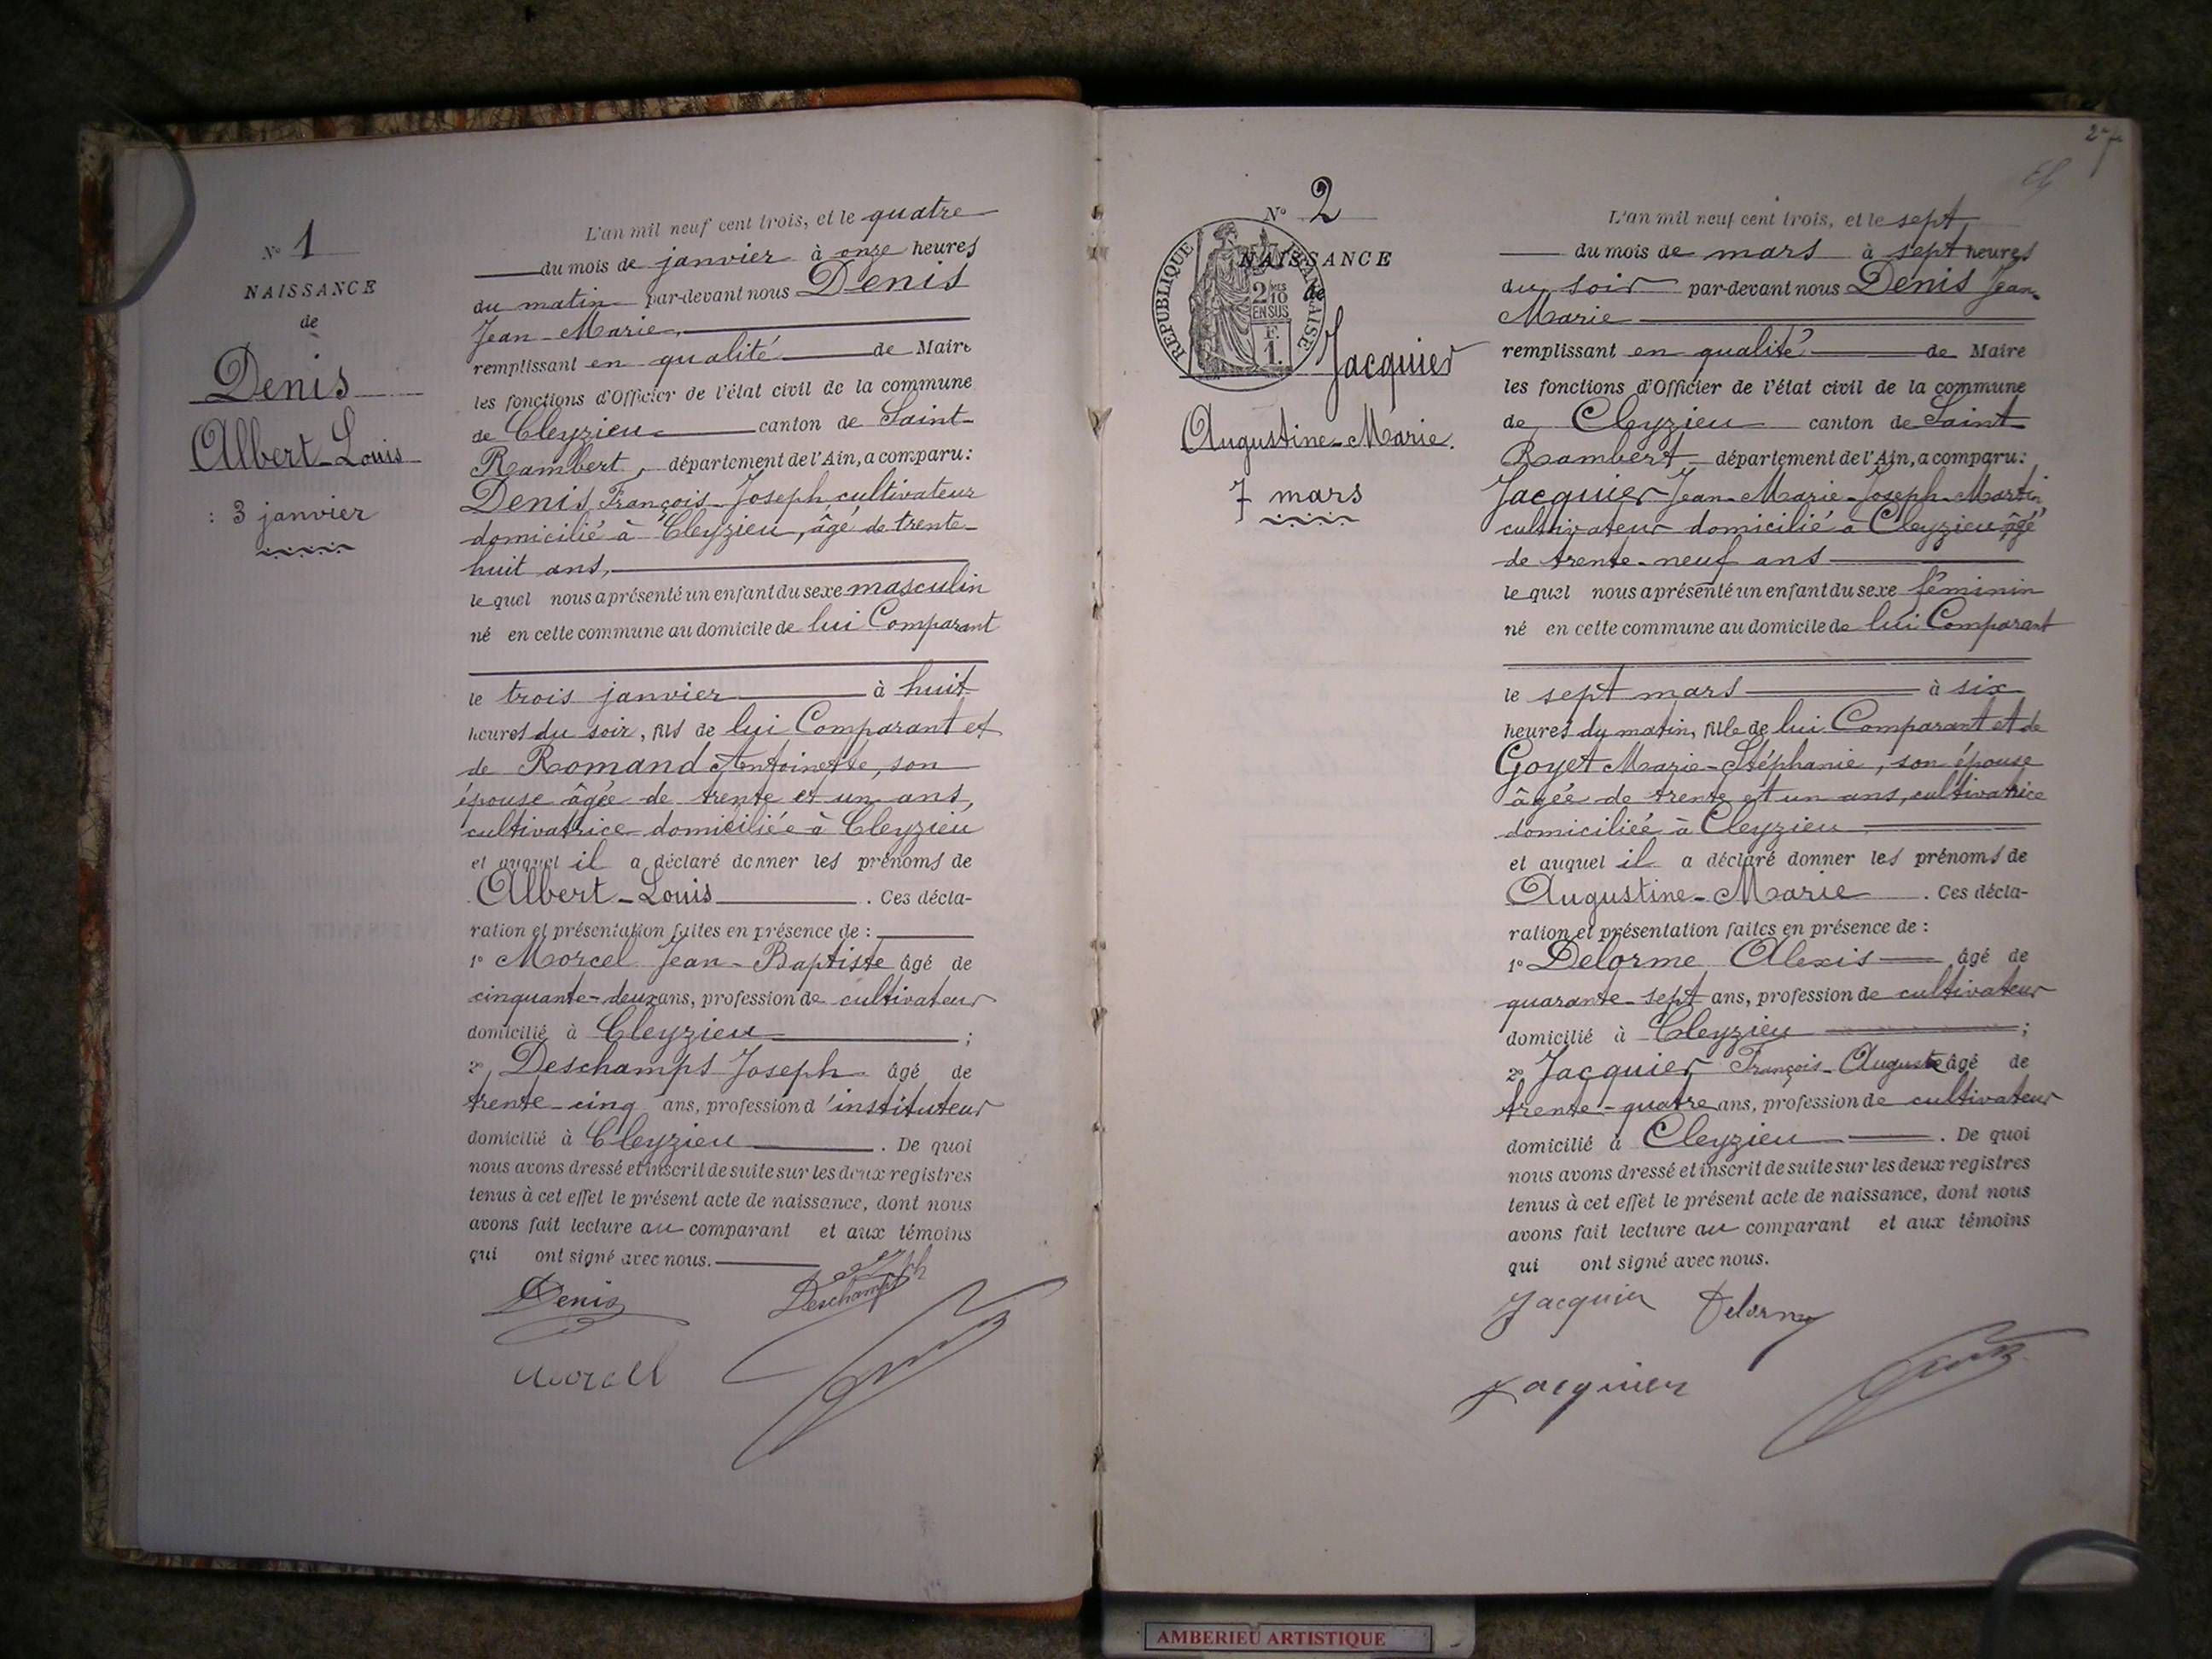 N° 1
NAISSANCE
de
Denis
Albert-Louis
3 janvier
L'an mil neuf cent trois, et le quatre
du mois de janvier à onze heures
du matin par-devant nous Denis
Jean-Marie,
remplissant en qualité de Maire
les fonctions d'Officier de l'état civil de la commune
de Cleyzieu canton de Saint-
Rambert, département de l'Ain, a comparu:
Denis François-Joseph, cultivateur
domicilié à Cleyzieu, âgé de trente-
huit ans,
lequel nous a présenté un enfant du sexe masculin
né en cette commune au domicile de lui Comparant
le trois janvier à huit
heures du soir, fils de lui Comparant et
de Romand Antoinette, son
épouse âgée de trente et un ans,
cultivatrice domiciliée à Cleyzieu
et auquel il a déclaré donner les prénoms de
Albert-Louis. Ces décla-
ration et présentation faites en présence de :
1° Morcel Jean-Baptiste âgé de
cinquante-deux ans, profession de cultivateur
domicilié à Cleyzieu ;
2° Deschamps Joseph âgé de
trente-cinq ans, profession d'instituteur
domicilié à Cleyzieu. De quoi
nous avons dressé et inscrit de suite sur les deux registres
tenus à cet effet le présent acte de naissance, dont nous
avons fait lecture au comparant et aux témoins
qui ont signé avec nous.
Denis
Deschamps
Morcel
27
N° 2
NAISSANCE
de
RÉPUBLIQUE FRANÇAISE
2/10
EN SUS
F.
1.
Jacquier
Augustine-Marie.
7 mars
L'an mil neuf cent trois, et le sept
du mois de mars à sept heures
du soir par-devant nous Denis Jean-
Marie
remplissant en qualité de Maire
les fonctions d'Officier de l'état civil de la commune
de Cleyzieu canton de Saint
Rambert département de l'Ain, a comparu:
Jacquier Jean-Marie-Joseph-Martin
cultivateur domicilié à Cleyzieu, âgé
de trente-neuf ans
lequel nous a présenté un enfant du sexe féminin
né en cette commune au domicile de lui Comparant
le sept mars à six
heures du matin, fille de lui Comparant et de
Goyet Marie-Stéphanie, son épouse
âgée de trente et un ans, cultivatrice
domiciliée à Cleyzieu
et auquel il a déclaré donner les prénoms de
Augustine-Marie. Ces décla-
ration et présentation faites en présence de :
1° Delorme Alexis âgé de
quarante-sept ans, profession de cultivateur
domicilié à Cleyzieu ;
2° Jacquier François-Auguste âgé de
trente-quatre ans, profession de cultivateur
domicilié à Cleyzieu. De quoi
nous avons dressé et inscrit de suite sur les deux registres
tenus à cet effet le présent acte de naissance, dont nous
avons fait lecture au comparant et aux témoins
qui ont signé avec nous.
Jacquier Delorme
Jacquier
AMBERIEU ARTISTIQUE